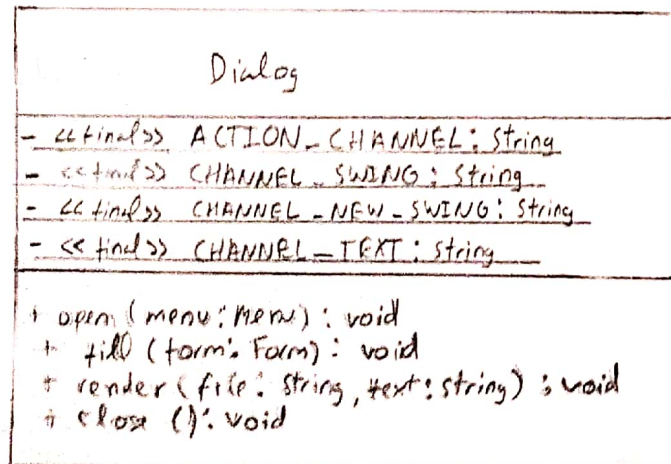 Dialog
- <<final>> ACTION_CHANNEL: String
- <<final>> CHANNEL_SWING: String
- <<final>> CHANNEL_NEW_SWING: String
- <<final>> CHANNEL_TEXT: String
+ open (menu: Menu): void
+ fill (form: Form): void
+ render (file: String, text: String): void
+ close (): void